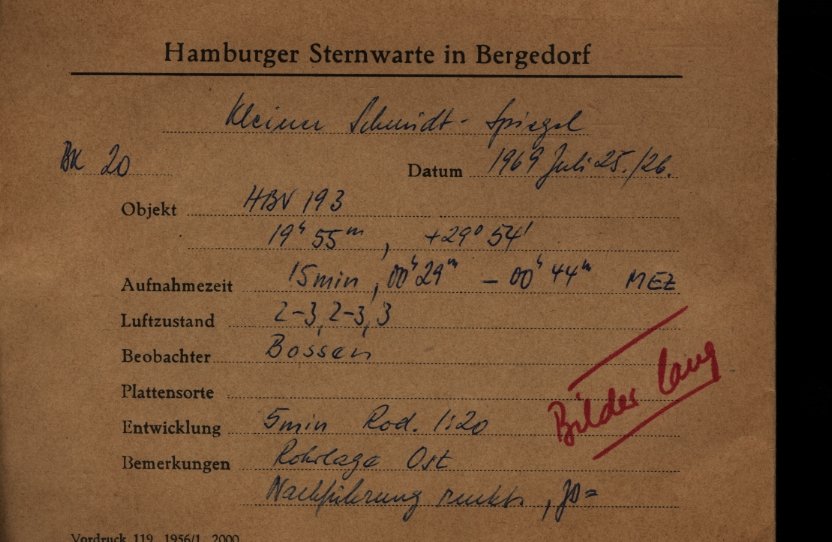 Hamburger Sternwarte in Bergedorf
Kleiner Schmidt-Spiegel
BK 20
Datum 1969 Juli 25./26.
Objekt HBV 193
19ʰ 55ᵐ, +29° 54'
Aufnahmezeit 15min, 00ʰ29ᵐ – 00ʰ44ᵐ MEZ
Luftzustand 2-3, 2-3, 3
Beobachter Bossen
Plattensorte
Entwicklung 5min Rod. 1:20
Bilder lang
Bemerkungen Rohrlage Ost
Nachführung
Vordruck 119 1956/1 2000